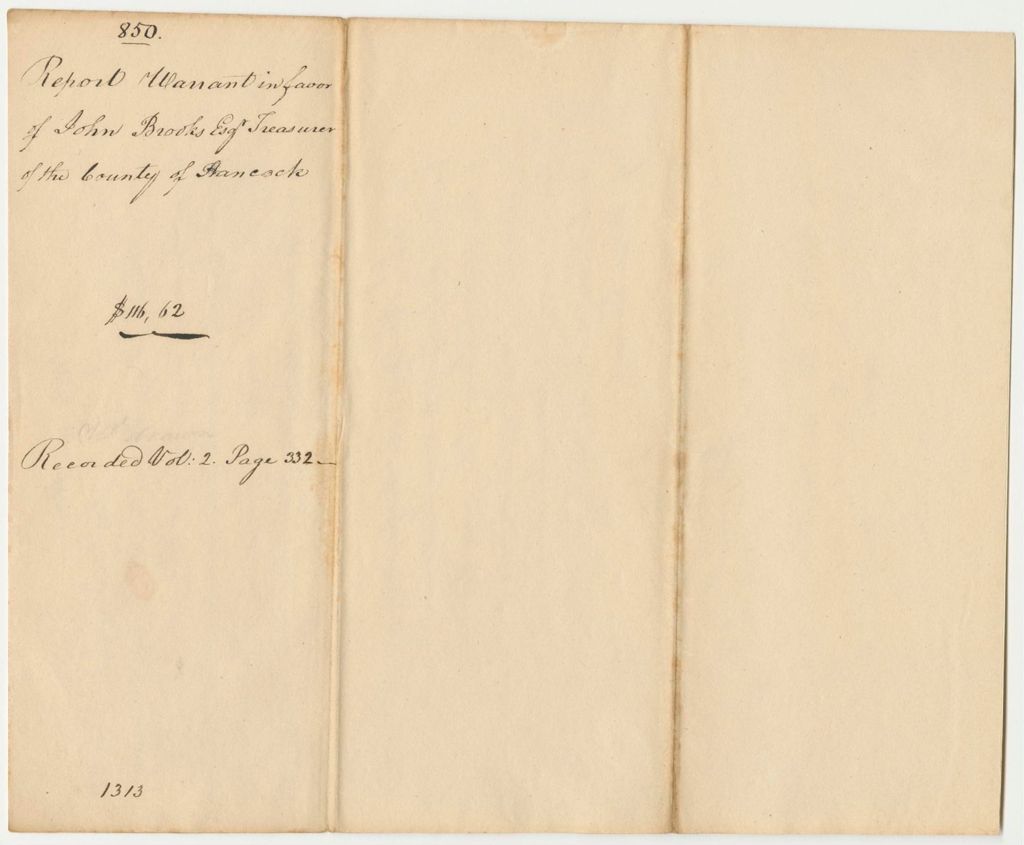 850.
Report Warrant in favor
of John Brooks Esqr Treasurer
of the County of Hancock
$116,62
Recorded Vol: 2. Page 332
1313